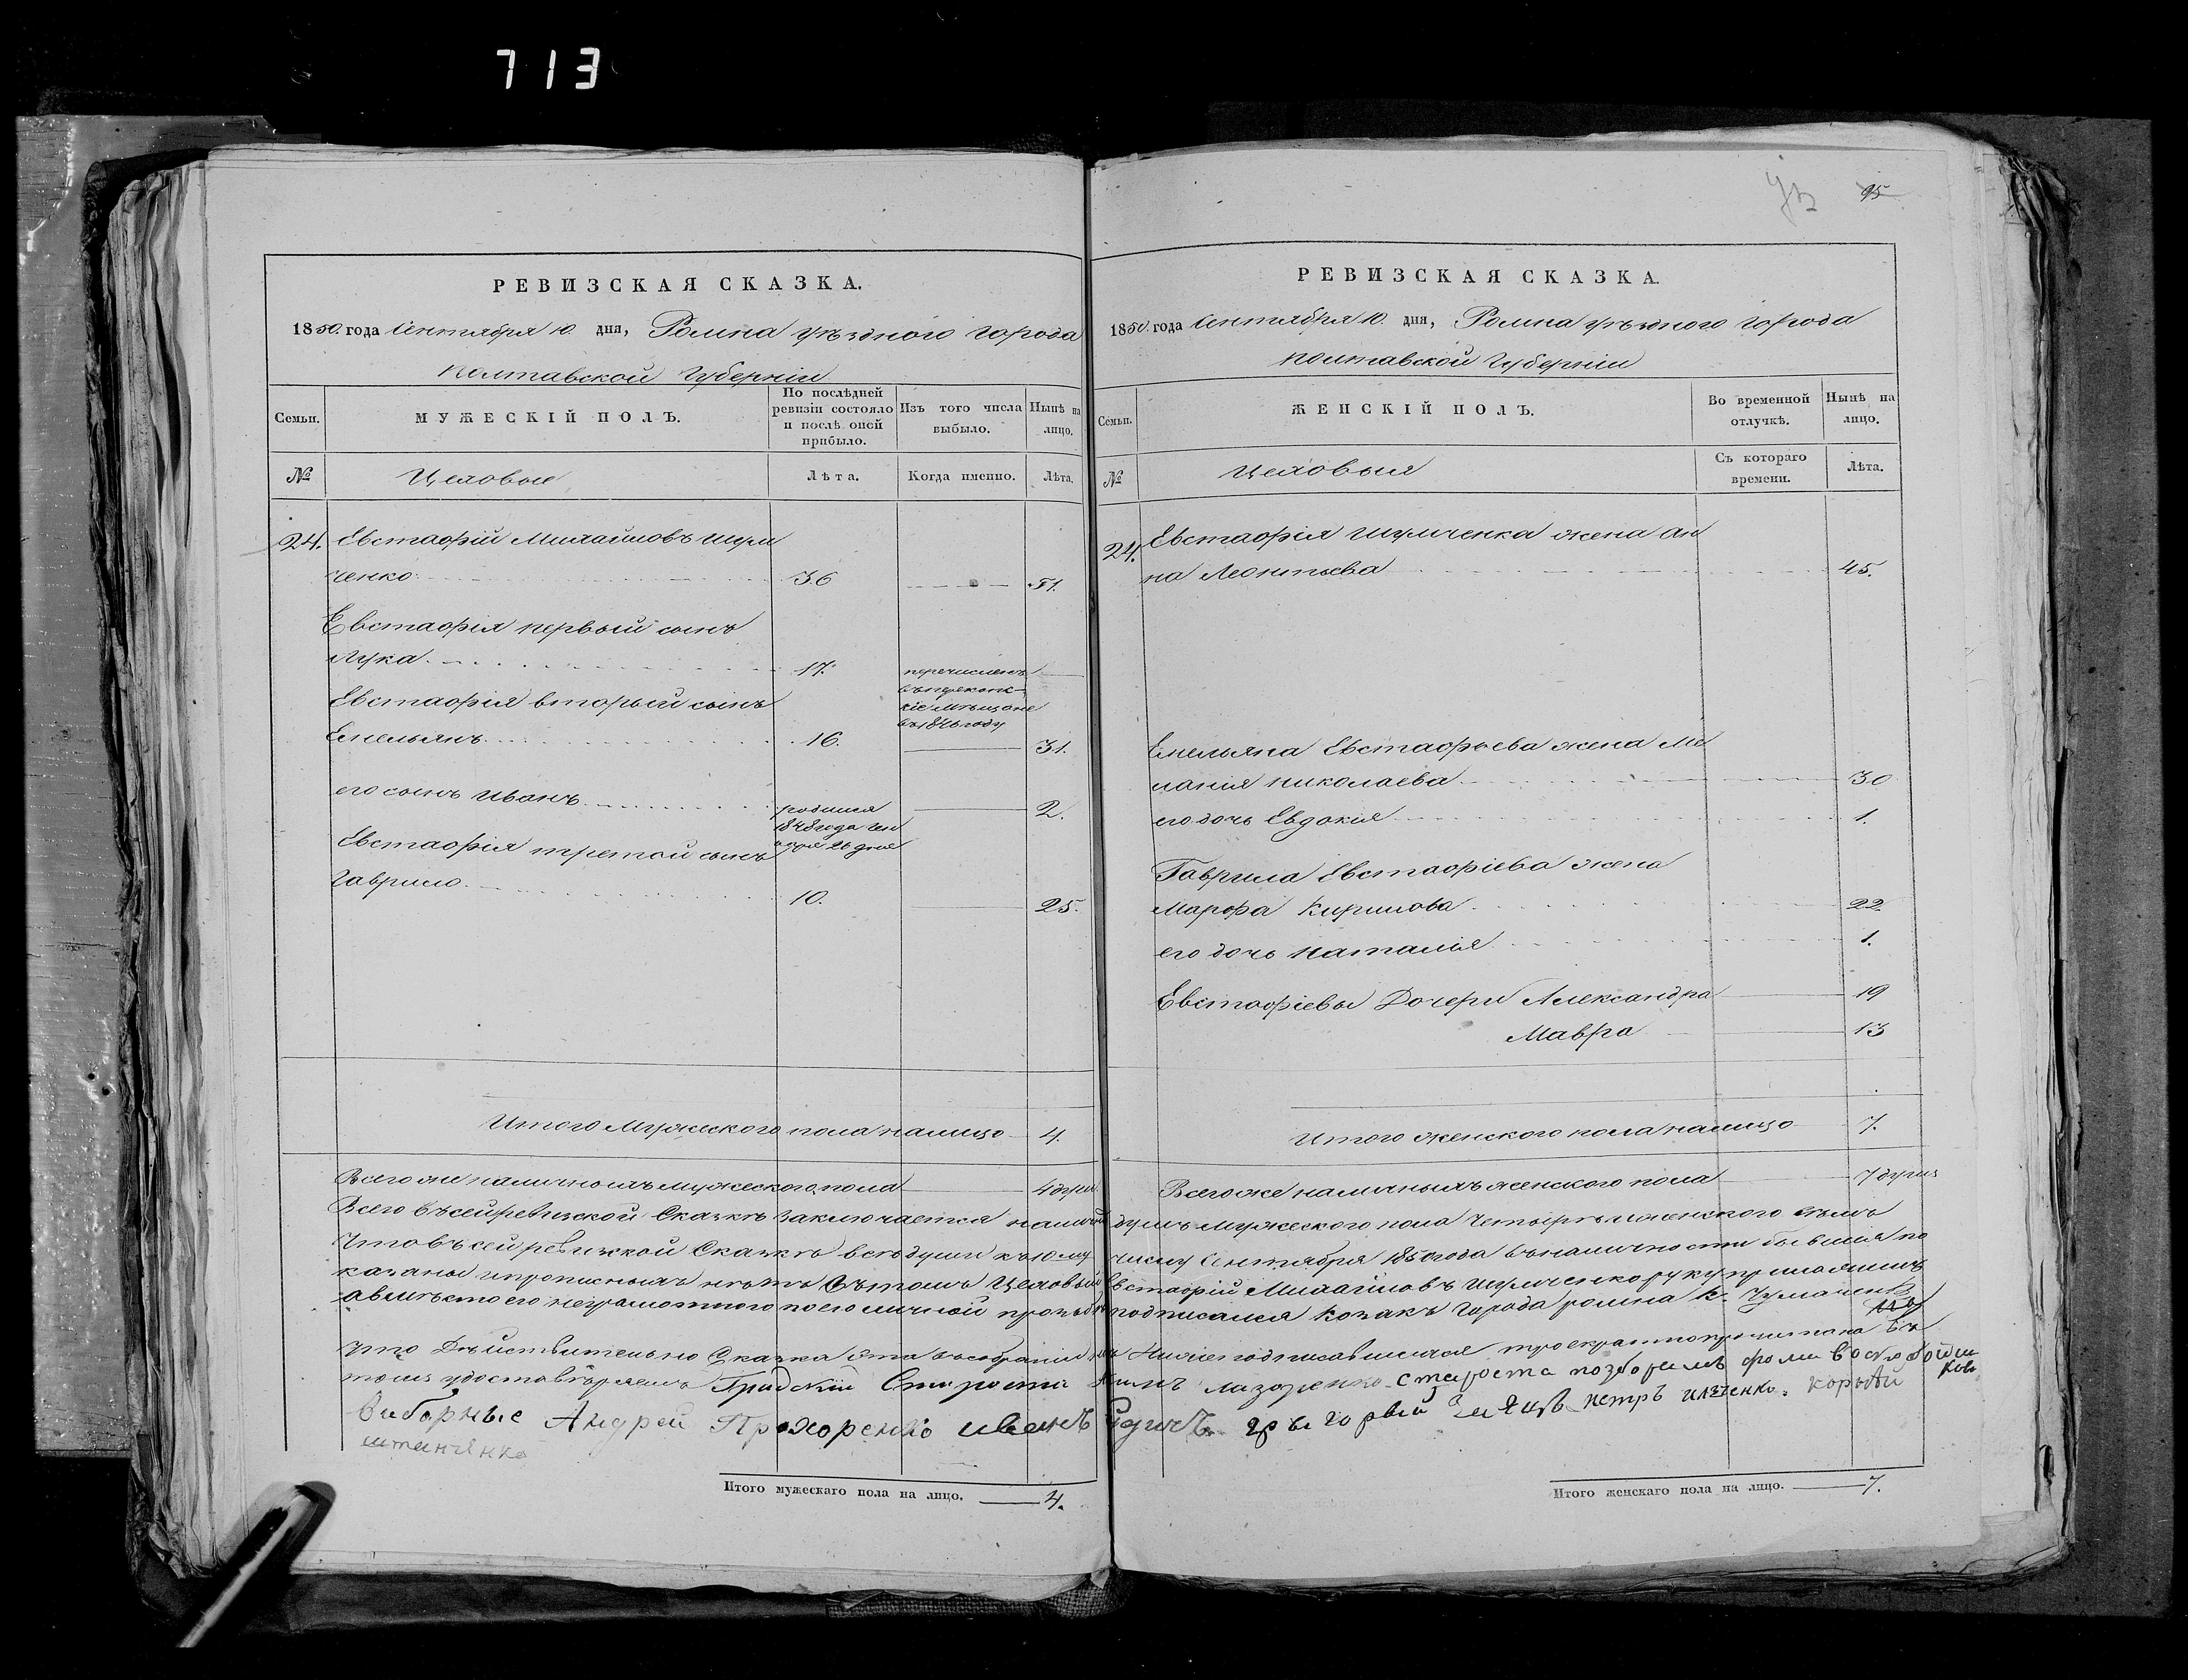 713
95
РЕВИЗСКАЯ СКАЗКА.
1850. года Сентября 10. дня, Ромна уѣзднаго города
Полтавской Губерніи
Семьи. МУЖЕСКІЙ ПОЛЪ. По послѣдней ревизіи состояло и послѣ оной прибыло. Изъ того числа выбыло. Нынѣ на лицо.
№ Цеховые Лѣта. Когда именно. Лѣта.
24. Евстафій Михайловъ Шум
ченко 36 51.
Евстафія первый сынъ
Лука. 17. перечисленъ
въ
кіе мѣщане
въ 1846 году
Евстафія вторый сынъ
Емельянъ 16. 31.
его сынъ Иванъ родился 2.
1848 года Ген
аря 26 дня
Евстафія третой сынъ
Гаврило 10. 25.
Итого Мужескаго пола налицо 4.
Всего же наличныхъ мужескаго пола 4 души
РЕВИЗСКАЯ СКАЗКА.
1850 года Сентября 10. дня, Ромна уѣзднаго города
Полтавской Губерніи
Семьи. ЖЕНСКІЙ ПОЛЪ. Во временной отлучкѣ. Нынѣ на лицо.
№ Цеховыя Съ котораго времени. Лѣта.
24. Евстафія Шумченка жена Ан
на Леонтьева 45.
Емельяна Евстафьева жена Ме
ланія Николаева 30
его дочь Евдокія 1.
Гаврила Евстафіева жена
Марфа Кирилова 22.
его дочь Наталія 1.
Евстафіевы Дочери Александра 19
Мавра 13
Итого женского пола налицо 7.
Всего же наличныхъ женского пола 7 душъ
Всего въ сей ревизской Сказкѣ заключается душъ мужеского пола четыре и женского семь
Что въ сей ревизской Сказкѣ всѣ души къ 10му числу Сентября 1850 года въ наличности бывшія по
казаны и прописныхъ нѣтъ Въ томъ Цеховый Евстафій Михайловъ Шумченко руку приложилъ
а вмѣсто его неграмотного по его личной прозьбѣ подписался козакъ города Ромна К.
что Дѣйствительно Сказка эта въ собраніи троекратно прочитана въ
томъ удостовѣряемъ Градскій Староста Лазоренко староста
Виборные Андрей Прохоренко иванъ петръ
Итого мужескаго пола на лицо. 4.
Итого женскаго пола на лицо. 7.